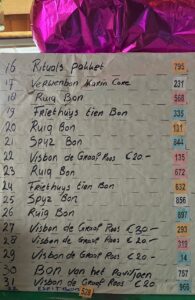 16 Rituals pakket 795
17 Verwenbon Martin Care 231
18 Ruig Bon 568
19 Friethuys tien Bon 335
20 Ruig Bon 131
21 Spyz Bon 844
22 Visbon de Graaf Roos €20- 135
23 Ruig Bon 672
24 Friethuys tien Bon 632
25 Spyz Bon 856
26 Ruig Bon 897
27 Visbon de Graaf Roos €30- 293
28 Visbon de Graaf Roos €20- 319
29 Visbon de Graaf Roos €20- 14
30 Bon van het Paviljoen 757
31 Visbon de Graaf Roos €20 966
528